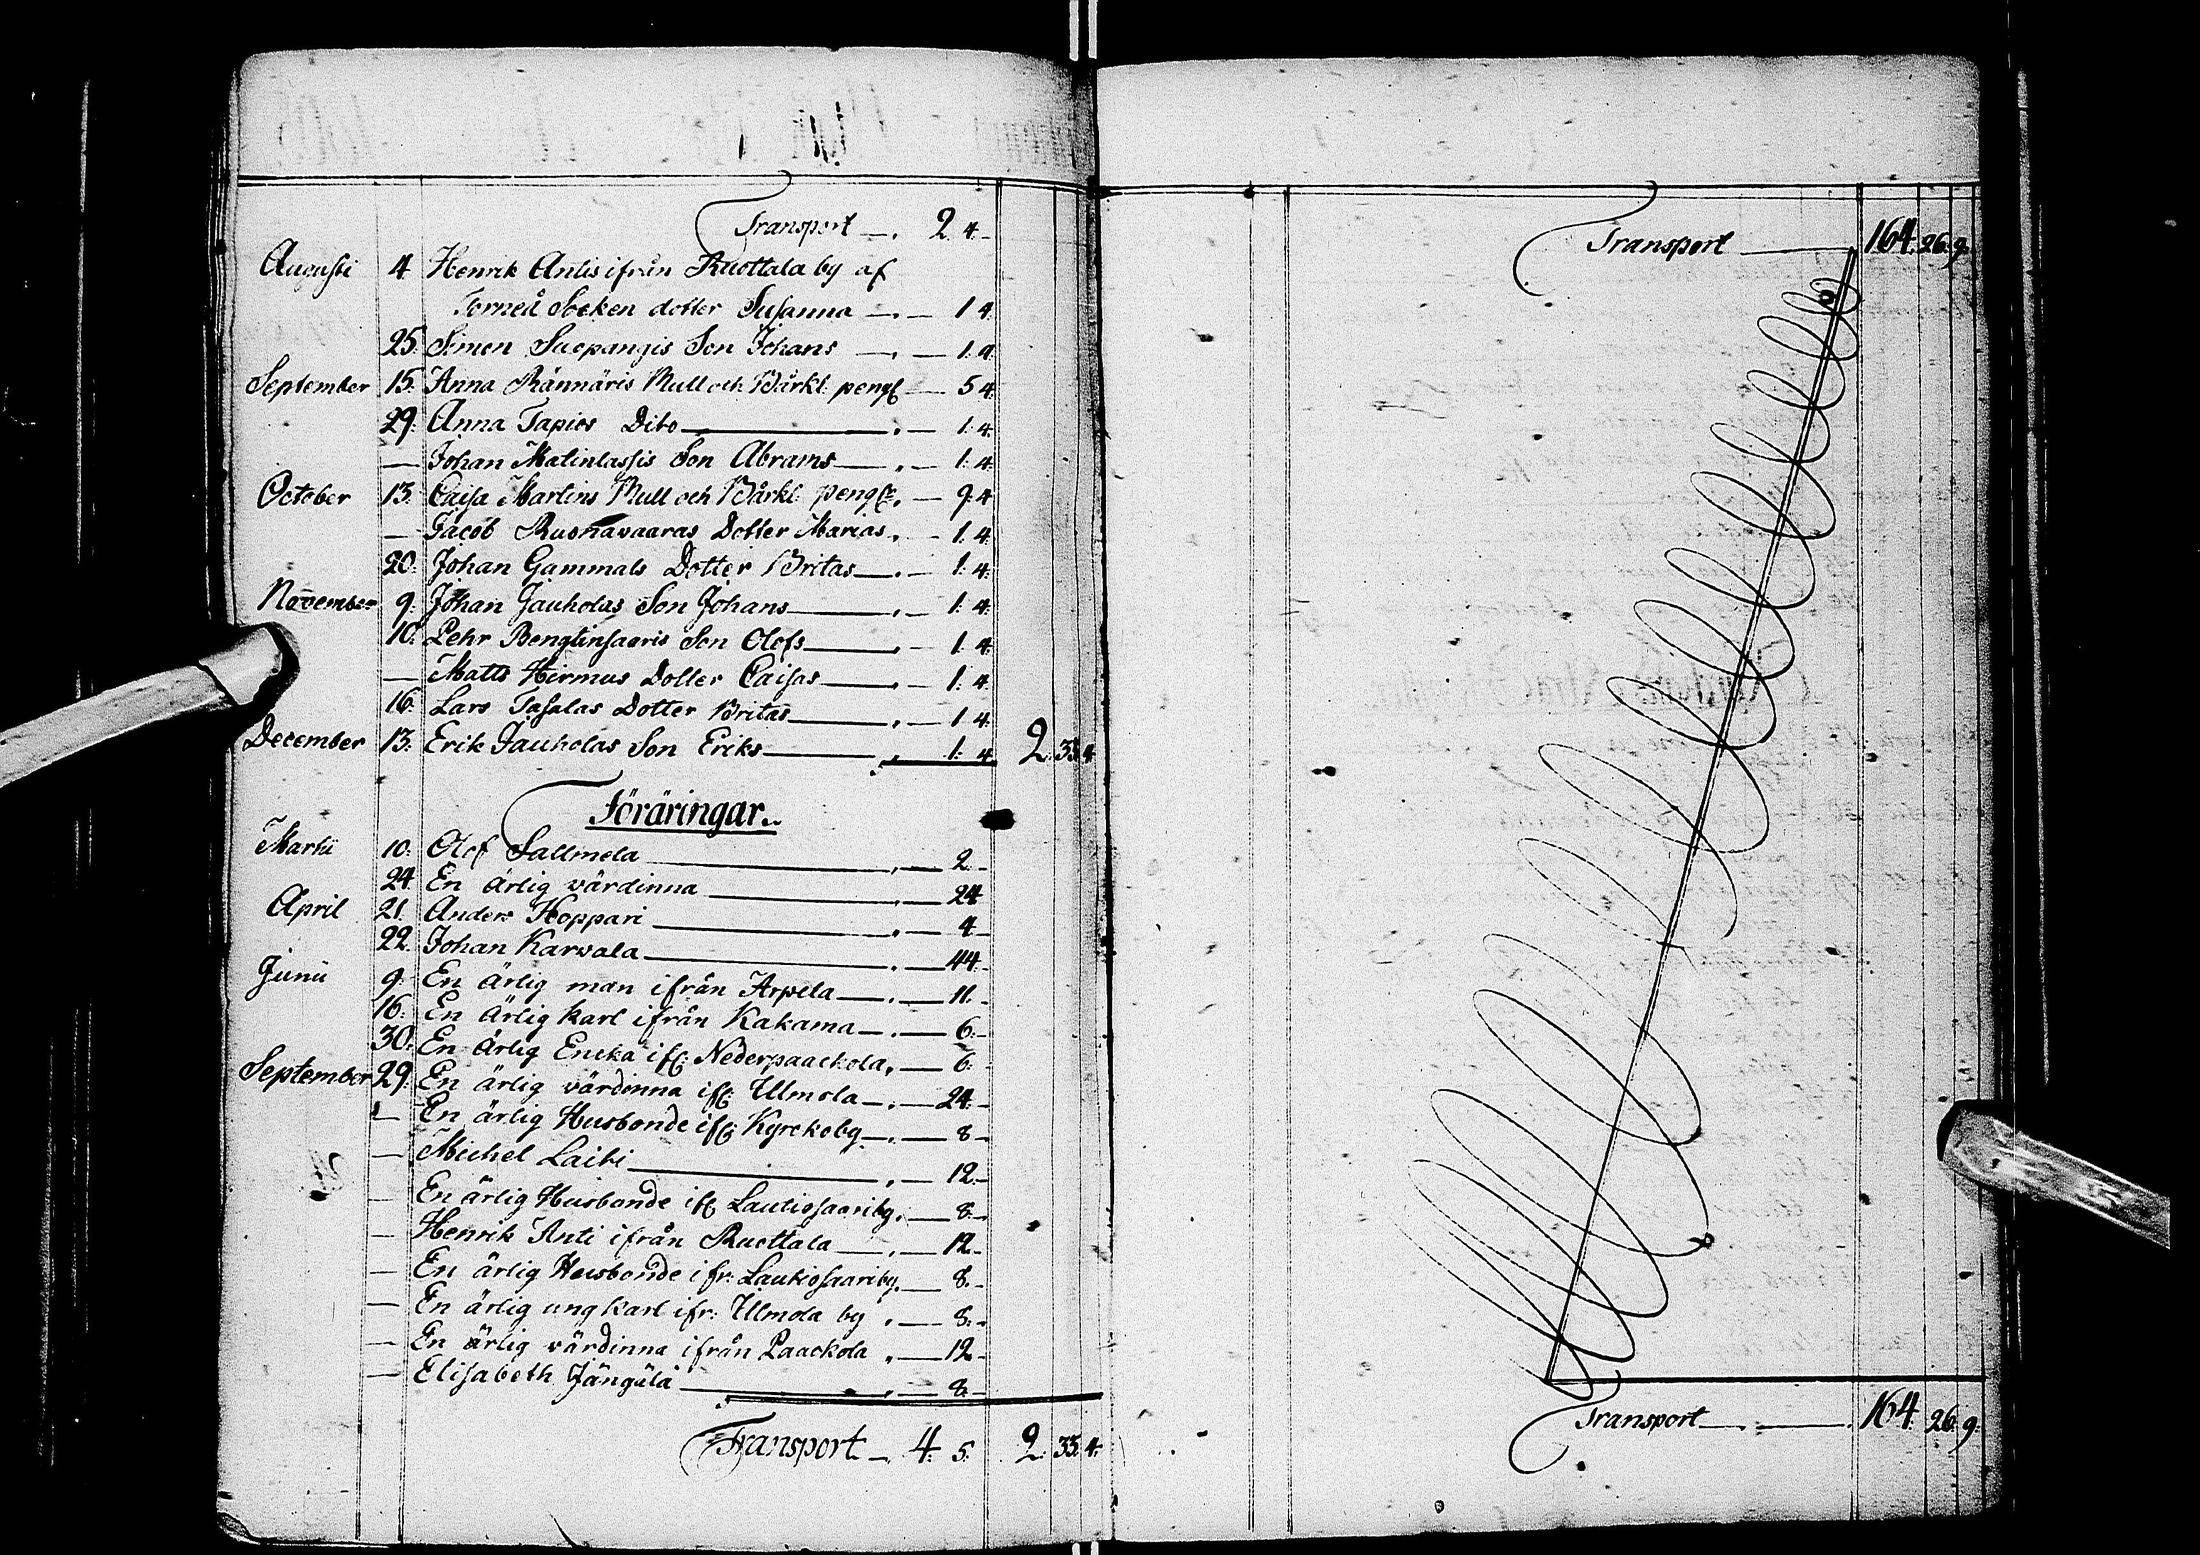 Transport —. 2. 4.
Augusti 4 Henrik Antis ifrån Ruottala by af
Torneå Socken dotter Susanna —. — 1 4.
25. Simon Suopangis Son Johans —. — 1. 4.
September 15. Anna Rännäris Mull och Bårkl. peng. — 5 4.
29. Anna Tapios Dito —. — 1. 4.
— Johan Matinlassis Son Abrams —. — 1. 4.
October 13. Caisa Martins Mull och Bårkl. peng. — 9 4
— Jacob Ruonavaaras Dotter Marias. — 1. 4.
20. Johan Gammals Dotter Britas —. — 1. 4.
November 9. Johan Jauholas Son Johans —. — 1. 4.
10. Pehr Bengtinsaaris Son Olofs —. — 1. 4.
— Matts Hirmus Dotter Caisas —. — 1. 4.
16. Lars Tasalas Dotter Britas —. — 1. 4.
December 13. Erik Jauholas Son Eriks —. 1. 4. 2. 33. 4.
Föräringar.
Martii 10. Olof Sallmela —. — 2. -
24. En ärlig värdinna —. — 24
April 21. Anders Hoppari —. — 4
22. Johan Karvala —. — 44. -
Junii 9. En ärlig man ifrån Arpela —. — 11. -
16. En ärlig karl ifrån Kakama —. — 6. -
30. En ärlig Encka ifr: Nederpaackola. — 6. -
September 29. En ärlig värdinna ifr: Ullmola —. — 24. -
— En ärlig Husbonde ifr: Kyrckoby —. — 8 -
— Michel Laiti —. — 12. -
— En ärlig Husbonde ifr: Lautiosaari by. — 8. -
— Henrik Anti ifrån Ruottala —. — 12. -
— En ärlig Husbonde ifr: Lautiosaari by. — 8. -
— En ärlig ung karl ifr: Ullmola by . — 8. -
— En ärlig värdinna ifrån Paackola . — 12 -
— Elisabeth Jängälä —. — 8. -
Transport —. 4. 5. 2. 33. 4.
Transport — 164. 26. 9.
Transport — . 164. 26. 9.